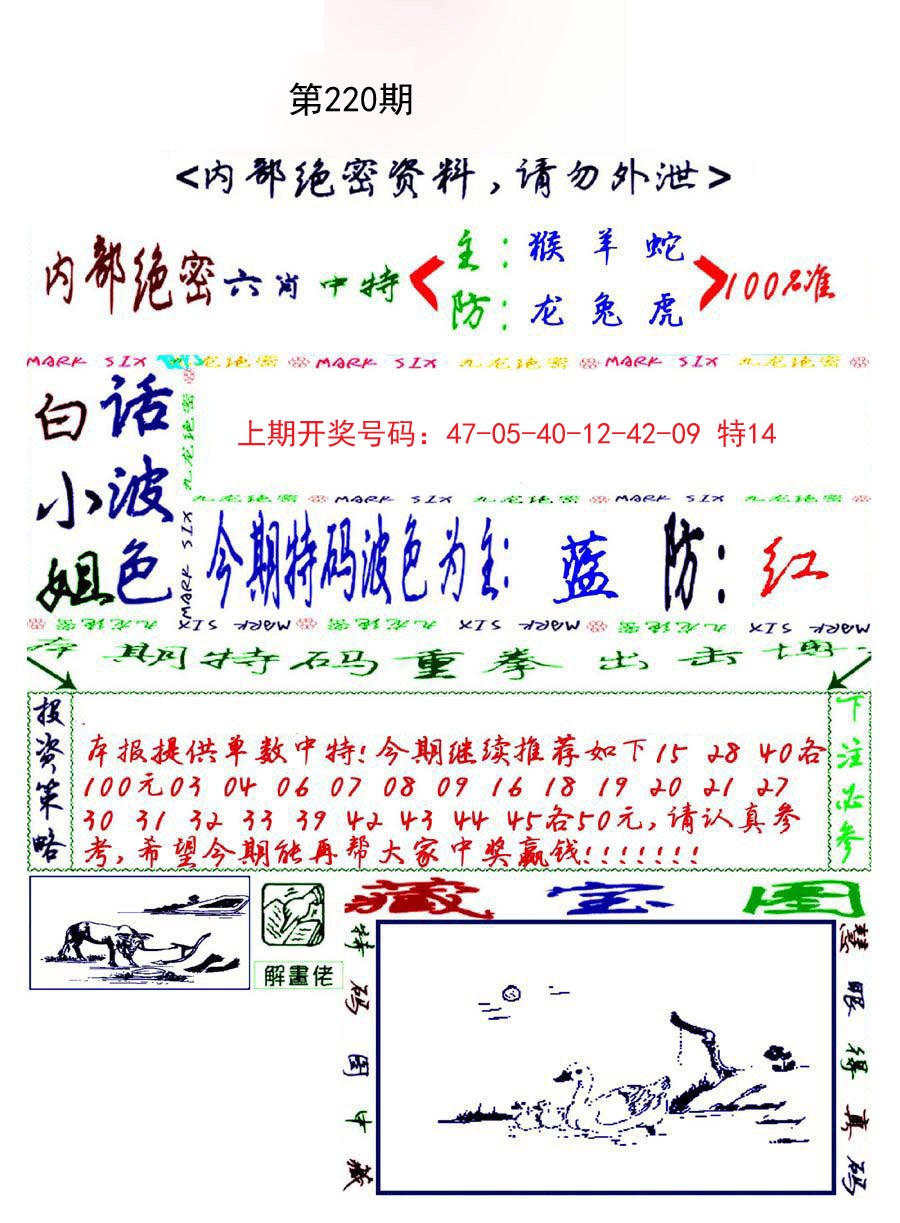 第220期
<内部绝密资料,请勿外泄>
内部绝密六肖中特
主:猴羊蛇
防:龙兔虎
100%准
MARK SIX 九龙绝密 MARK SIX 九龙绝密 MARK SIX 九龙绝密
白小姐
话波色
九龙绝密
MARK SIX
上期开奖号码：47-05-40-12-42-09 特14
九龙绝密 MARK SIX 九龙绝密 MARK SIX 九龙绝密
今期特码波色为主: 蓝 防: 红
MARK SIX 九龙绝密 MARK SIX 九龙绝密 MARK SIX 九龙绝密 MARK SIX
本期特码重拳出击
投资策略
本报提供单数中特!今期继续推荐如下15 28 40各
100元03 04 06 07 08 09 16 18 19 20 21 27
30 31 32 33 39 42 43 44 45各50元,请认真参
考,希望今期能再帮大家中奖赢钱!!!!!!!
下注必参
解畫佬
藏宝图
特码图中藏
慧眼得真码